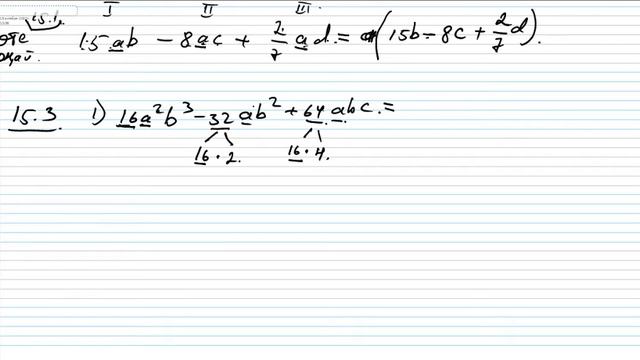 I II III.
15.1.
1.5ab - 8ac + 2/7 ad. = a(15b - 8c + 2/7 d).
15.3. 1) 16a²b³ - 32ab² + 64abc. =
16 · 2. 16 · 4.